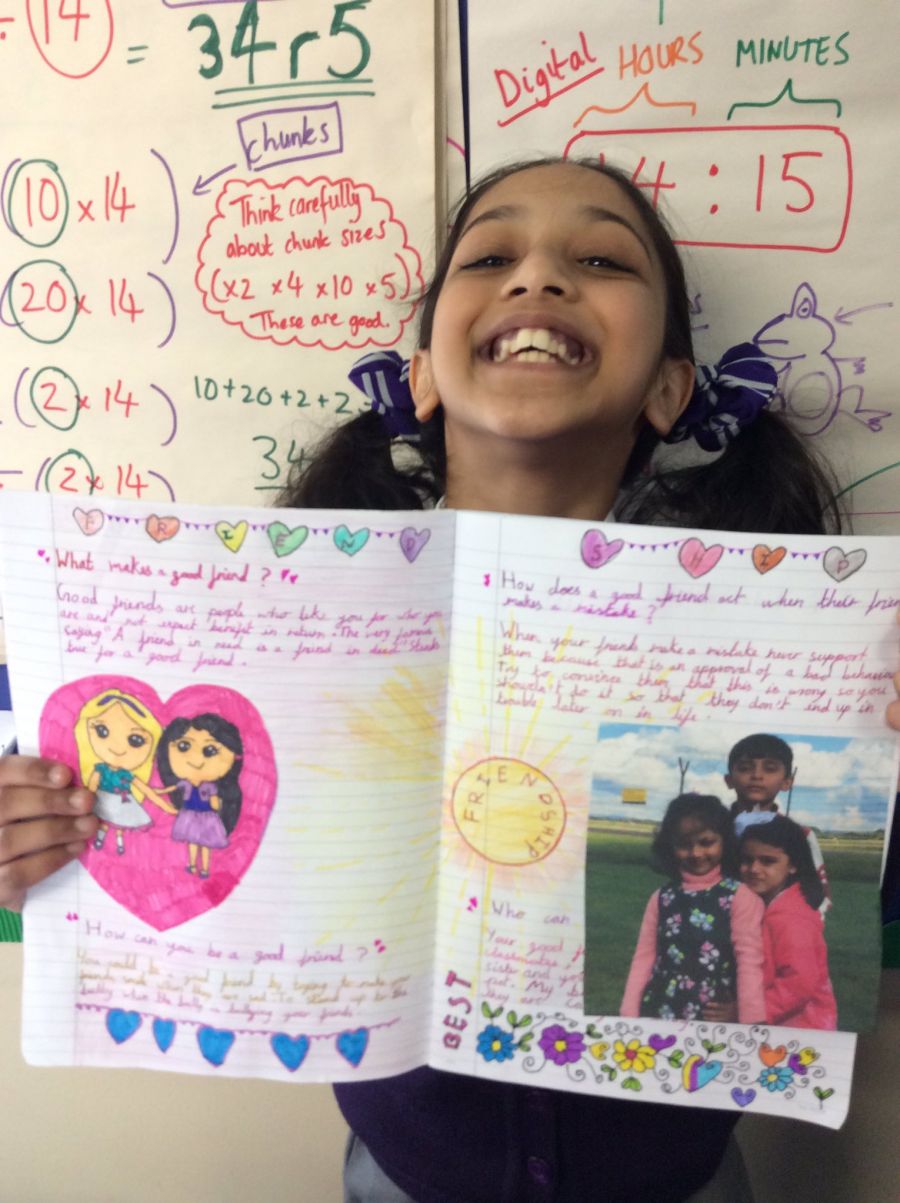 ÷ 14 = 34 r 5
chunks
(10 x 14)
(20 x 14)
(2 x 14)
(2 x 14)
Think carefully
about chunk sizes
(x2 x4 x10 x5)
These are good.
10+20+2+2
34
Digital HOURS MINUTES
4:15
FRIEND
What makes a good friend?
Good friends are people who like you for who you
are and not expect benefit in return. The very famous
saying "A friend in need is a friend in deed" stands
true for a good friend.
How can you be a good friend?
You could be a good friend by trying to make your
friends smile when they are sad. To stand up to the
bully when the bully is bullying your friends.
SHIP
How does a good friend act when their frien
makes a mistake?
When your friends make a mistake never support
them because that is an approval of a bad behaviou
Try to convince them that this is wrong so you
shouldn't do it so that they don't end up in
trouble later on in life.
FRIENDSHIP
Who can
Your good f
classmates,
sister and yo
pet. My b
they are
BEST